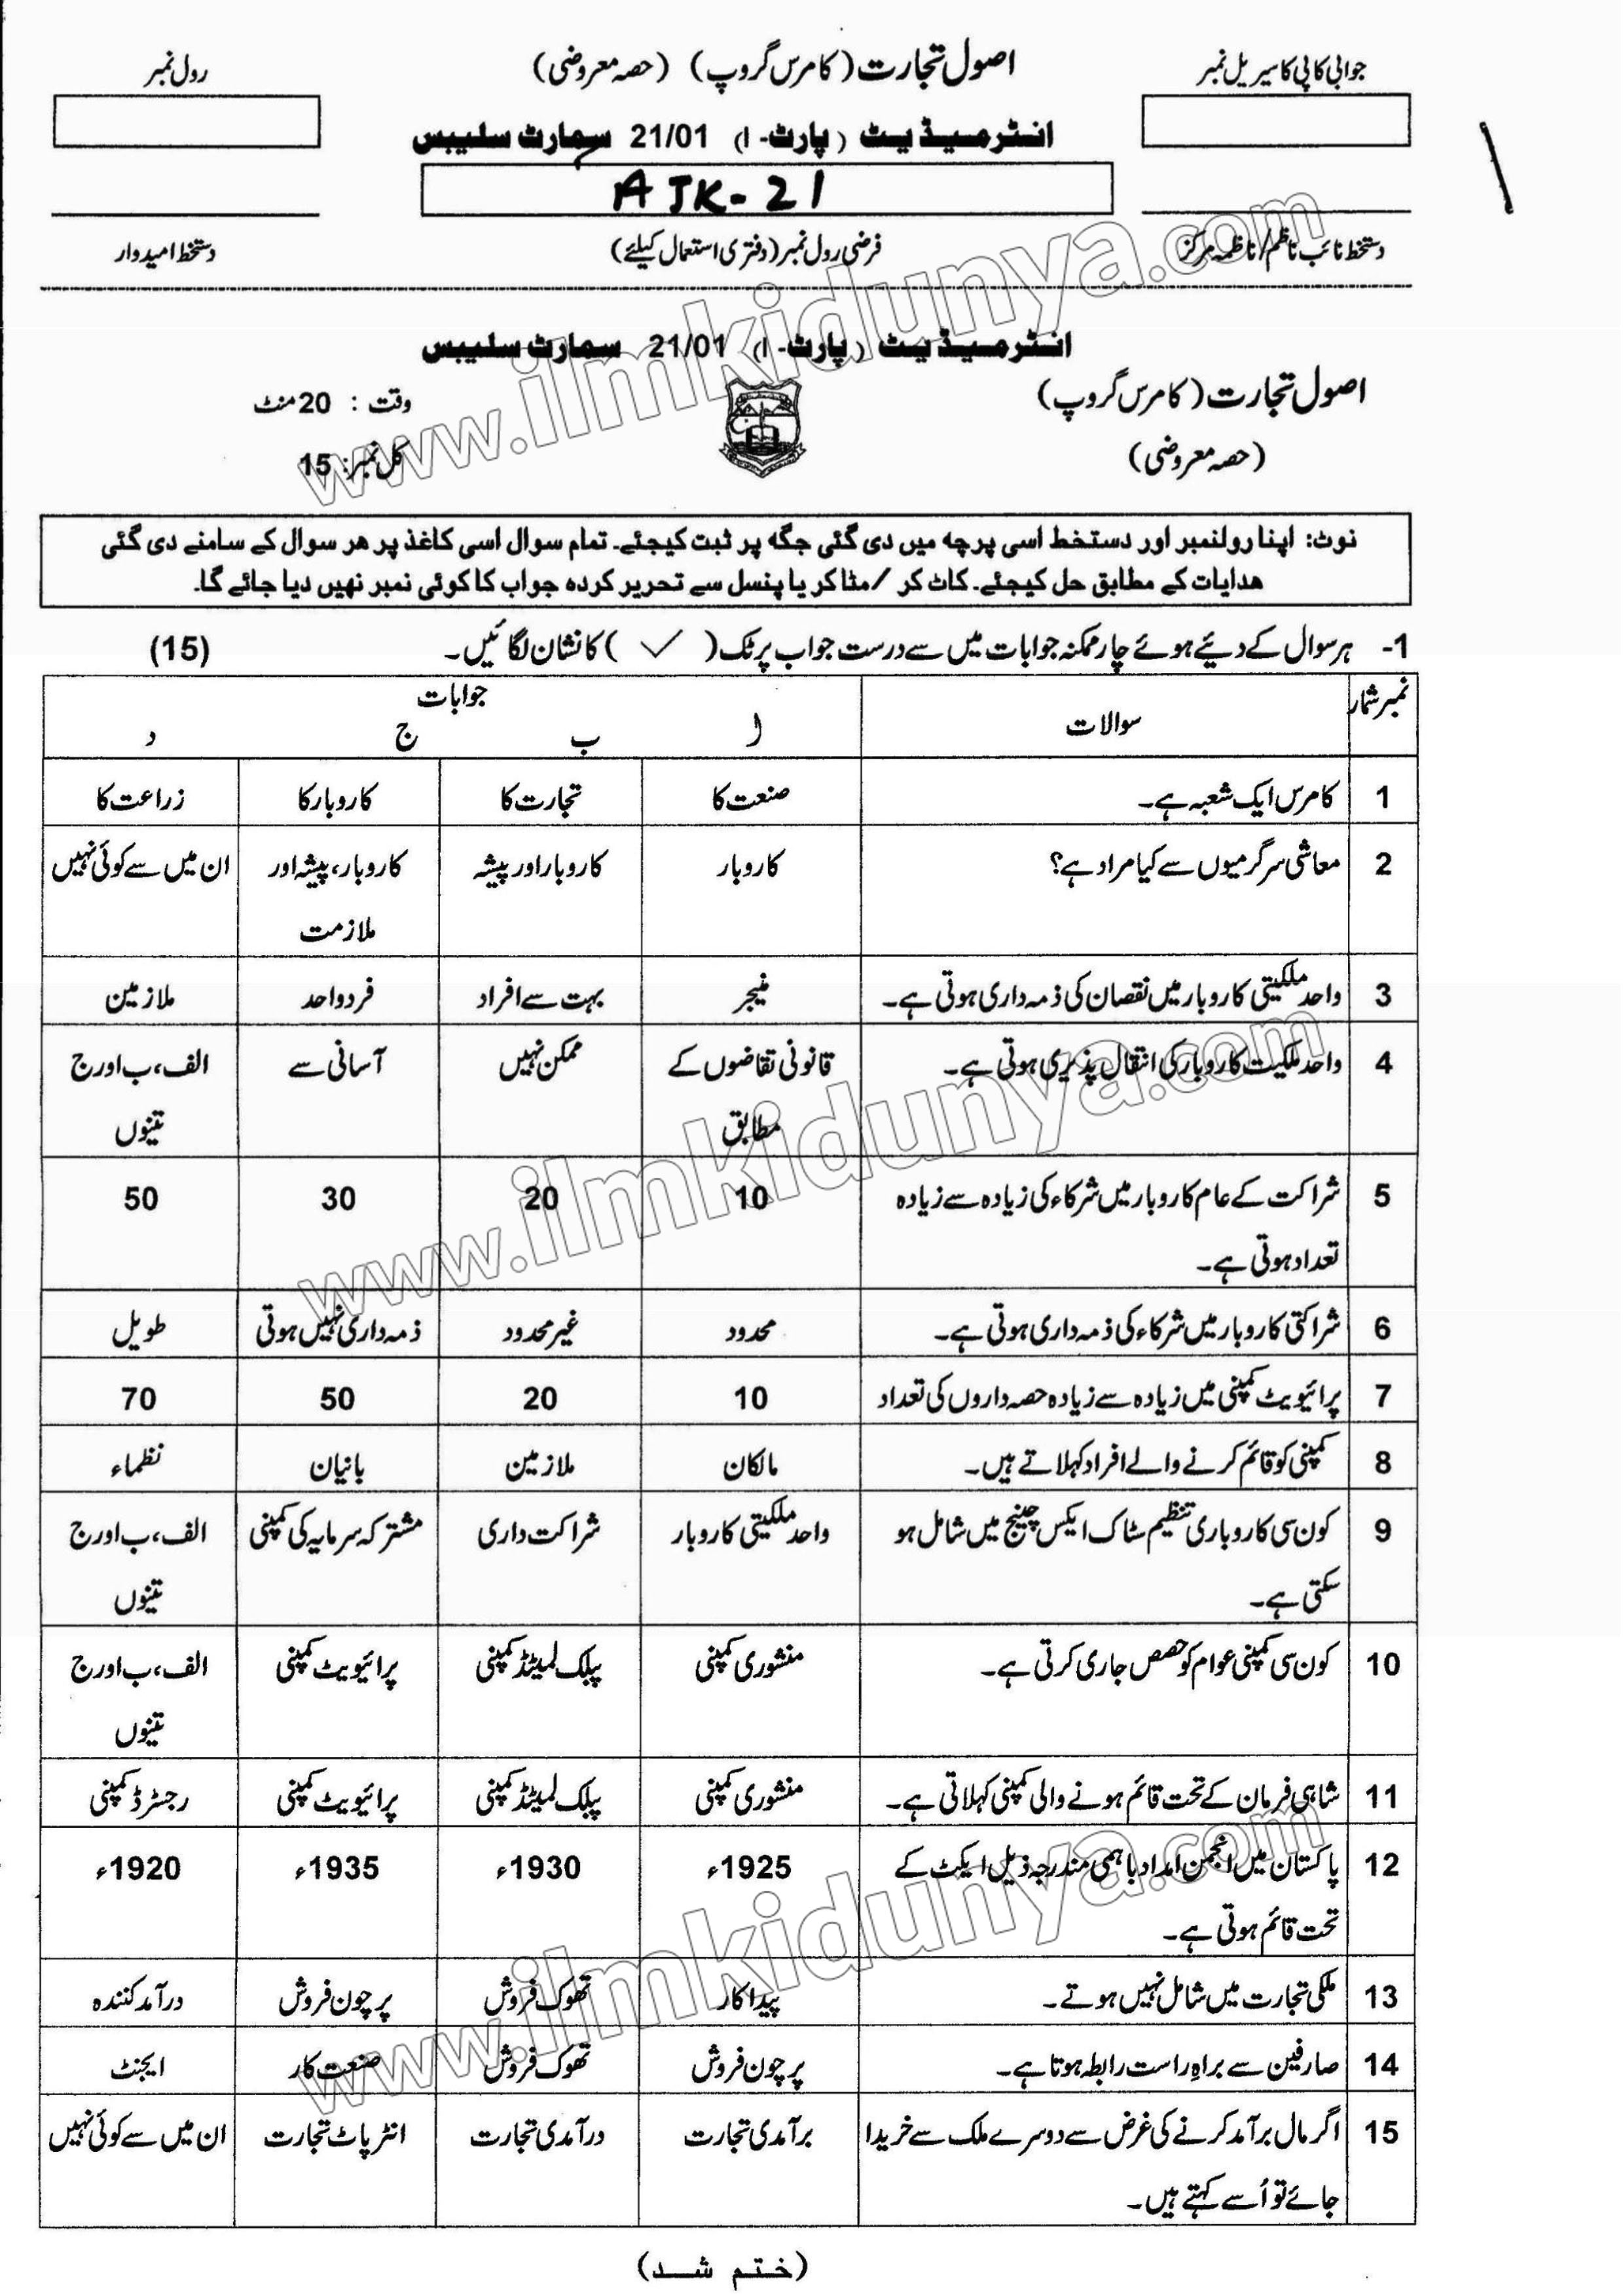 جوابی کاپی کا سیریل نمبر
اصول تجارت (کامرس گروپ) (حصہ معروضی)
رول نمبر
انٹرمیڈیٹ (پارٹ-I) 21/01 سمارٹ سلیبس
AJK-21
دستخط نائب ناظم/ناظمہ مرکز
فرضی رول نمبر (دفتری استعمال کیلئے)
دستخط امیدوار
انٹرمیڈیٹ (پارٹ-I) 21/01 سمارٹ سلیبس
اصول تجارت (کامرس گروپ)
وقت : 20 منٹ
(حصہ معروضی)
کل نمبر: 15
نوٹ: اپنا رولنمبر اور دستخط اسی پرچہ میں دی گئی جگہ پر ثبت کیجئے۔ تمام سوال اسی کاغذ پر ھر سوال کے سامنے دی گئی
ھدایات کے مطابق حل کیجئے۔ کاٹ کر /مٹا کر یا پنسل سے تحریر کردہ جواب کا کوئی نمبر نھیں دیا جائے گا۔
1- ہر سوال کے دیئے ہوئے چار ممکنہ جوابات میں سے درست جواب پر ٹک ( ✓ ) کا نشان لگائیں۔ (15)
نمبر شمار سوالات جوابات
ا ب ج د
1 کامرس ایک شعبہ ہے۔ صنعت کا تجارت کا کاروبار کا زراعت کا
2 معاشی سرگرمیوں سے کیا مراد ہے؟ کاروبار کاروبار اور پیشہ کاروبار، پیشہ اور ان میں سے کوئی نہیں
ملازمت
3 واحد ملکیتی کاروبار میں نقصان کی ذمہ داری ہوتی ہے۔ منیجر بہت سے افراد فرد واحد ملازمین
4 واحد ملکیت کاروبار کی انتقال پذیری ہوتی ہے۔ قانونی تقاضوں کے ممکن نہیں آسانی سے الف، ب اور ج
مطابق تینوں
5 شراکت کے عام کاروبار میں شرکاء کی زیادہ سے زیادہ 10 20 30 50
تعداد ہوتی ہے۔
6 شراکتی کاروبار میں شرکاء کی ذمہ داری ہوتی ہے۔ محدود غیر محدود ذمہ داری نہیں ہوتی طویل
7 پرائیویٹ کمپنی میں زیادہ سے زیادہ حصہ داروں کی تعداد 10 20 50 70
8 کمپنی کو قائم کرنے والے افراد کہلاتے ہیں۔ مالکان ملازمین بانیان نظماء
9 کون سی کاروباری تنظیم سٹاک ایکس چینج میں شامل ہو واحد ملکیتی کاروبار شراکت داری مشترکہ سرمایہ کی کمپنی الف، ب اور ج
سکتی ہے۔ تینوں
10 کون سی کمپنی عوام کو حصص جاری کرتی ہے۔ منشوری کمپنی پبلک لمیٹڈ کمپنی پرائیویٹ کمپنی الف، ب اور ج
تینوں
11 شاہی فرمان کے تحت قائم ہونے والی کمپنی کہلاتی ہے۔ منشوری کمپنی پبلک لمیٹڈ کمپنی پرائیویٹ کمپنی رجسٹرڈ کمپنی
12 پاکستان میں انجمن امداد باہمی مندرجہ ذیل ایکٹ کے 1925ء 1930ء 1935ء 1920ء
تحت قائم ہوتی ہے۔
13 ملکی تجارت میں شامل نہیں ہوتے۔ پیداکار تھوک فروش پرچون فروش درآمد کنندہ
14 صارفین سے براہِ راست رابطہ ہوتا ہے۔ پرچون فروش تھوک فروش صنعت کار ایجنٹ
15 اگر مال برآمد کرنے کی غرض سے دوسرے ملک سے خریدا برآمدی تجارت درآمدی تجارت انٹرپاٹ تجارت ان میں سے کوئی نہیں
جائے تو اُسے کہتے ہیں۔
(ختم شد)
www.ilmkidunya.com
www.ilmkidunya.com
www.ilmkidunya.com